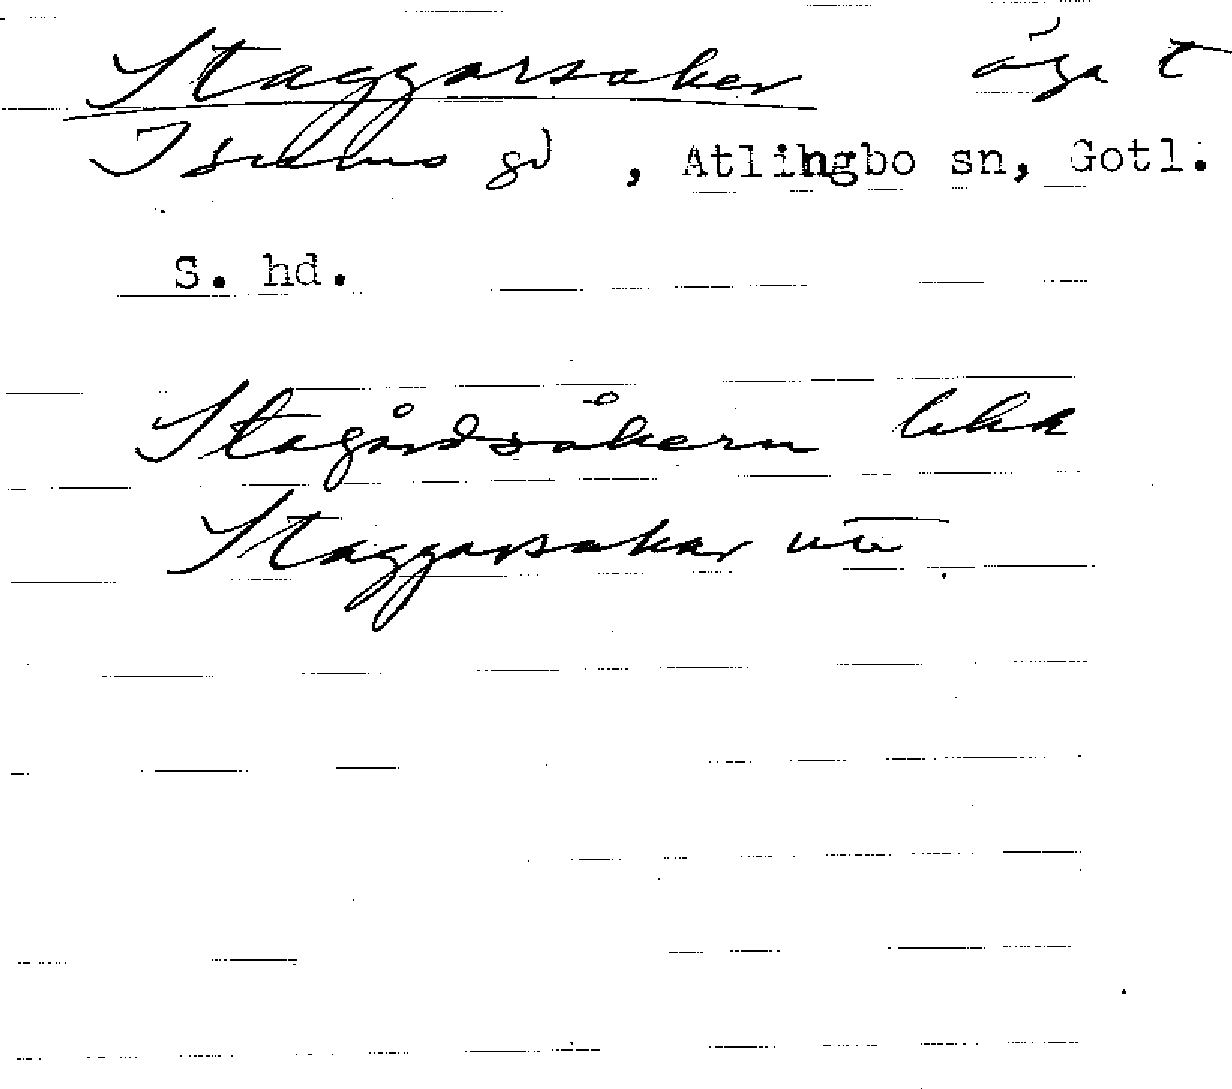 Staggarsaker äga t
Isums gd, Atlingbo sn, Gotl.
S. hd.
Stagårdsåkern lkk
Staggarsakar